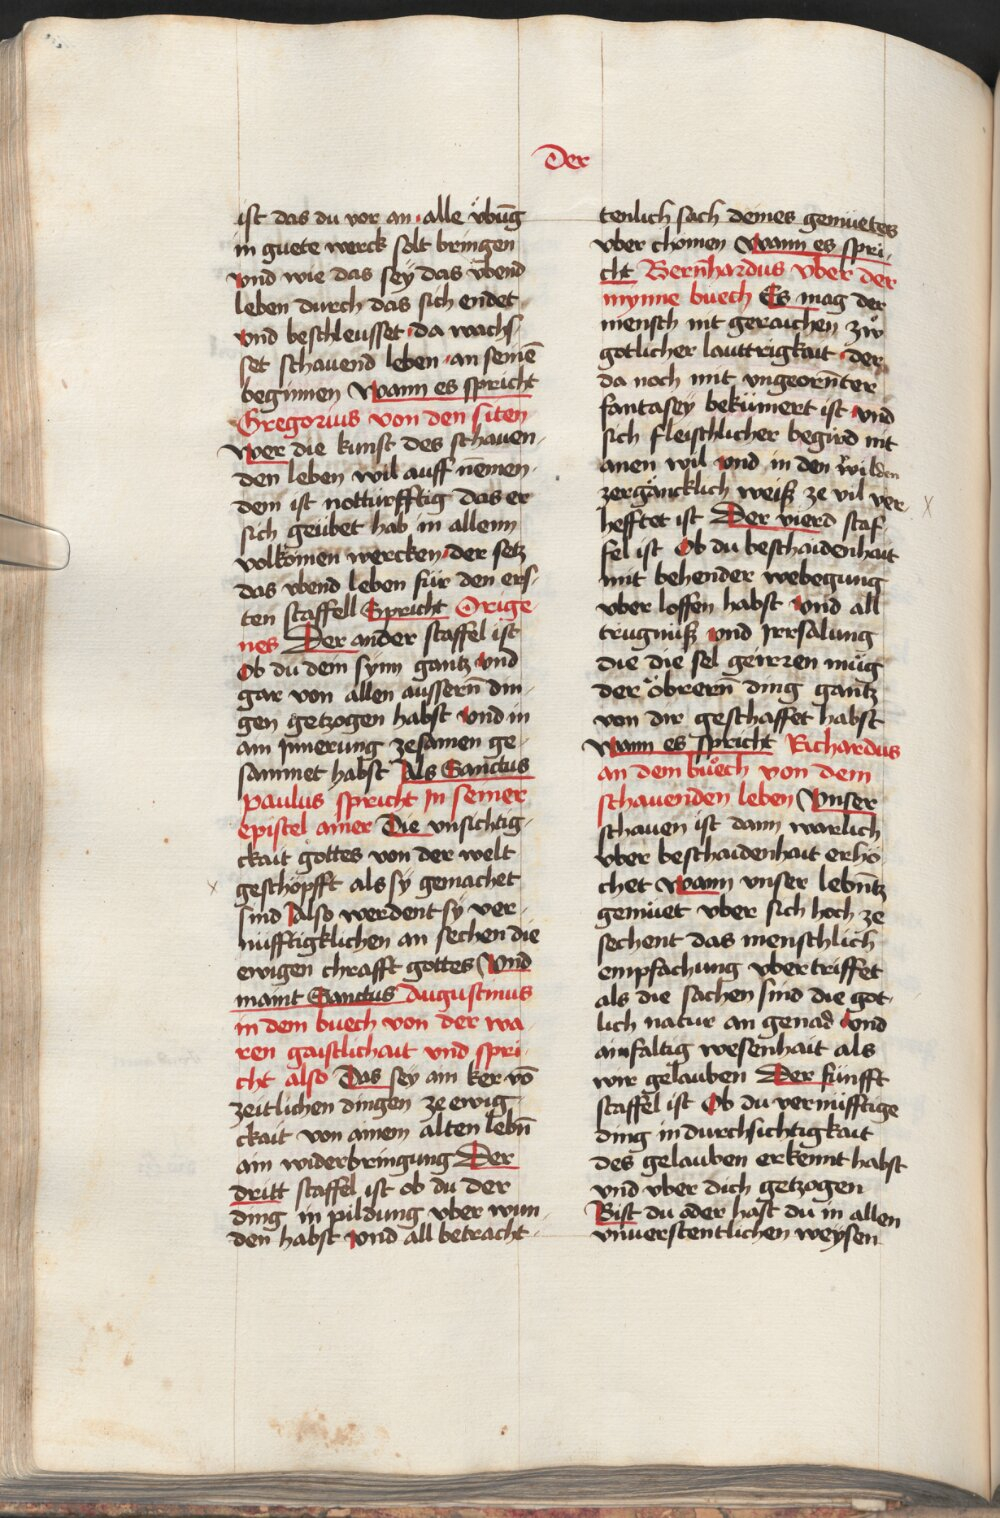 Der
ist das du vor an · alle v̈būg
in guete werck solt bringen
vnd wie das seÿ das vbend
leben durch das sich endet
vnd beschleusset · da wach/
set schauend leben · an seinē
beginnen Wann es spricht
Gregorius von den siten
Wer die kunst des schauen/
den leben wil auff nēmen ·
dem ist notturfftig das er
sich geübet hab in allenn
volkomen wercken · der setz
das vbend leben für den ers/
ten staffell Spricht Orige
nes Der ander staffel ist
Ob du dein synn gantz vnd
gar von allen aussern̄ din/
gen getzogen habst vnd in
ain Innerung zesamen ge/
sammet habst Als Sanctus
paulus spricht In seiner
epistel ainer Die vnsichtig/
ckait gottes von der welt
geschopfft als sy gemachet
sind Also werdent sy ver/
nufftigklichen an sechen die
ewigen chrafft gottes Vnd
maint Sanctus Augustinus
in dem buech von der wa/
ren gaistlichait vnd spri/
cht also Das seÿ ain ker vō
zeitlichen dingen ze ewig/
ckait von ainem alten lebn̄
ain widerbringung Der
dritt staffel ist ob du der
ding in pildung vber wun/
den habst vnd all betracht/
tenlich sach deines gemüetes
vber chomen Wann es spri/
cht Bern̄hardus vber der
mynne buech Es mag der
mensch nit geraichen zẘ
gotlicher lauttrigkait · der
da noch mit vngeorn̄ter
fantaseÿ bekümert ist vnd
sich fleischlicher begird nit
anen wil vnd in den wilden
zergäncklich weiß ze vil ver
hefftet ist Der vierd staf
fel ist Ob du beschaidenhait
mit behender webegung
vber loffen habst vnd all
trugnüß vnd Irrsalung
die die sel geirren müg
der öbrern̄ ding gantz
von dir geschaffet habst
Wann es spricht Richardus
an dem bůech von dem
schauenden leben Vnser
schauen ist dann warlich
vber beschaidenhait erhö
chet Wann vnser lebn̄tz
gemüet vber sich hoch ze
sechent das menschlich
empfachung vbertriffet
als die sachen sind die got/
lich natur an genad vnd
ainfaltig wesenhait als
wir gelauben Der fünfft
staffel ist Ob du vernüfftige
ding in durchsichtigkait
des gelauben erkennt habst
vnd vber dich getzogen
Bist du oder hast du in allen
vnuerstentlichen weysen